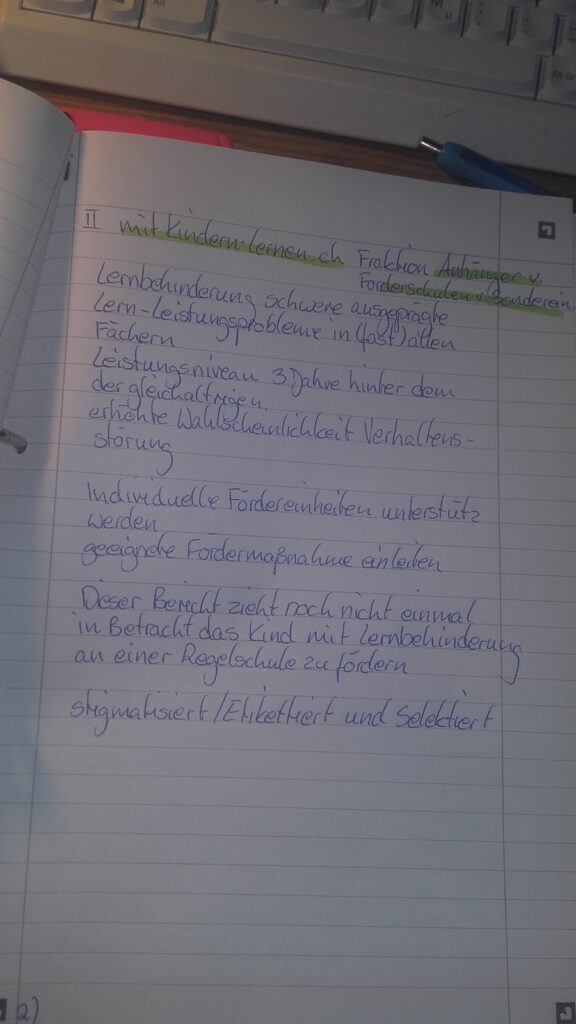 II mit kindern-lernen.ch Fraktion Anhänger v.
Förderschulen u. Sonderein.
Lernbehinderung schwere ausgeprägte
Lern-Leistungsprobleme in (fast) allen
Fächern
Leistungsniveau 3 Jahre hinter dem
der gleichaltrigen.
erhöhte Wahlscheinlichkeit Verhaltens-
störung
Individuelle Fördereinheiten unterstütz
werden
geeignete Fördermaßnahme einleiten
Dieser Bericht zieht noch nicht einmal
in Betracht das Kind mit Lernbehinderung
an einer Regelschule zu fördern
stigmatisiert/Etikettiert und Selektiert
2)